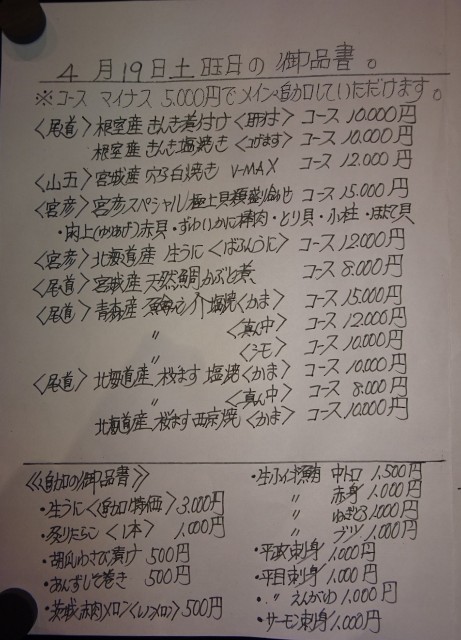 4月19日土旺日の御品書。
※コース マイナス 5.000円でメイン追加していただけます。
〈尾道〉根室産 きんき煮付け〈肝付〉コース 10.000円
根室産 きんき塩焼き〈コげます〉コース 10.000円
〈山五〉宮城産 穴子白焼き V-MAX コース 12.000円
〈宮彦〉宮彦スペシャル極上貝類盛り合せ コース 15.000円
・閖上(ゆりあげ)赤貝・ずわいかに棒肉・とり貝・小柱・ほたて貝
〈宮彦〉北海道産 生うに〈ばふんうに〉コース 12.000円
〈尾道〉宮城産 天然鯛かぶと煮 コース 8.000円
〈尾道〉青森産 塩焼〈かま〉コース 15.000円
〃 〈真ん中〉コース 12.000円
〃 〈シモ〉コース 10.000円
〈尾道〉北海道産 桜ます 塩焼〈かま〉コース 10.000円
〃 〈真ん中〉コース 8.000円
北海道産 桜ます西京焼〈かま〉コース 10.000円
《追加の御品書》
・生うに〈追加特価〉3.000円
・炙りたらこ〈1本〉1.000円
・胡瓜わさび漬け 500円
・あんずしそ巻き 500円
・茨城赤肉メロン〈レノンメロン〉500円
・生インド鮪 中トロ 1.500円
〃 赤身 1.000円
〃 ねぎとろ 1000円
〃 ブツ 1.000円
・平政刺身 1.000円
・平目刺身 1.000円
・〃 えんがわ 1.000円
・サーモン刺身 1.000円